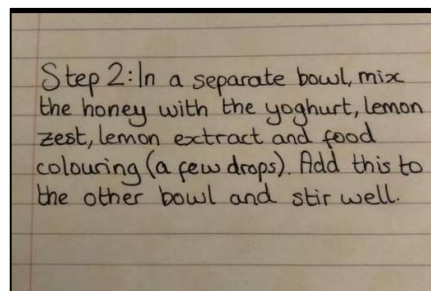 Step 2: In a separate bowl, mix
the honey with the yoghurt, lemon
zest, lemon extract and food
colouring (a few drops). Add this to
the other bowl and stir well.